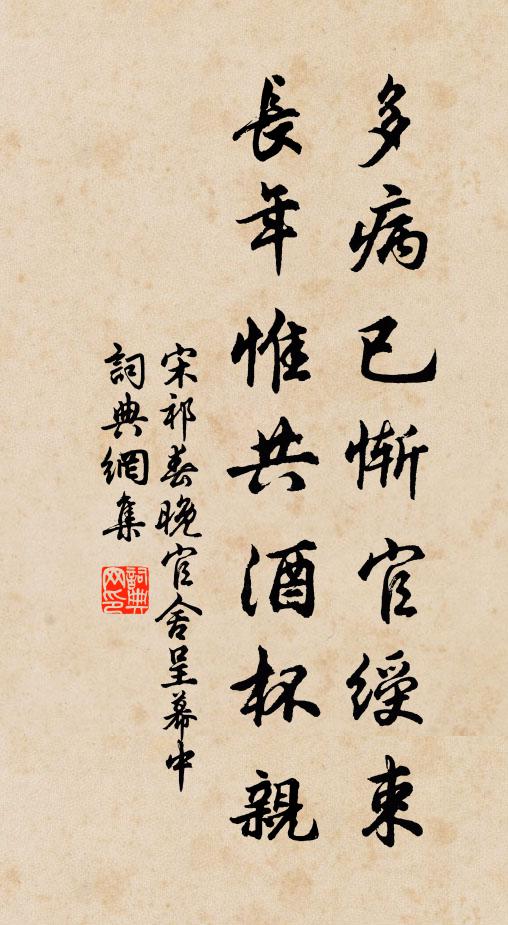 多病已慚官綬束
長年惟共酒杯親
宋祁春晚官舍呈幕中
詞典網集
詞典網印